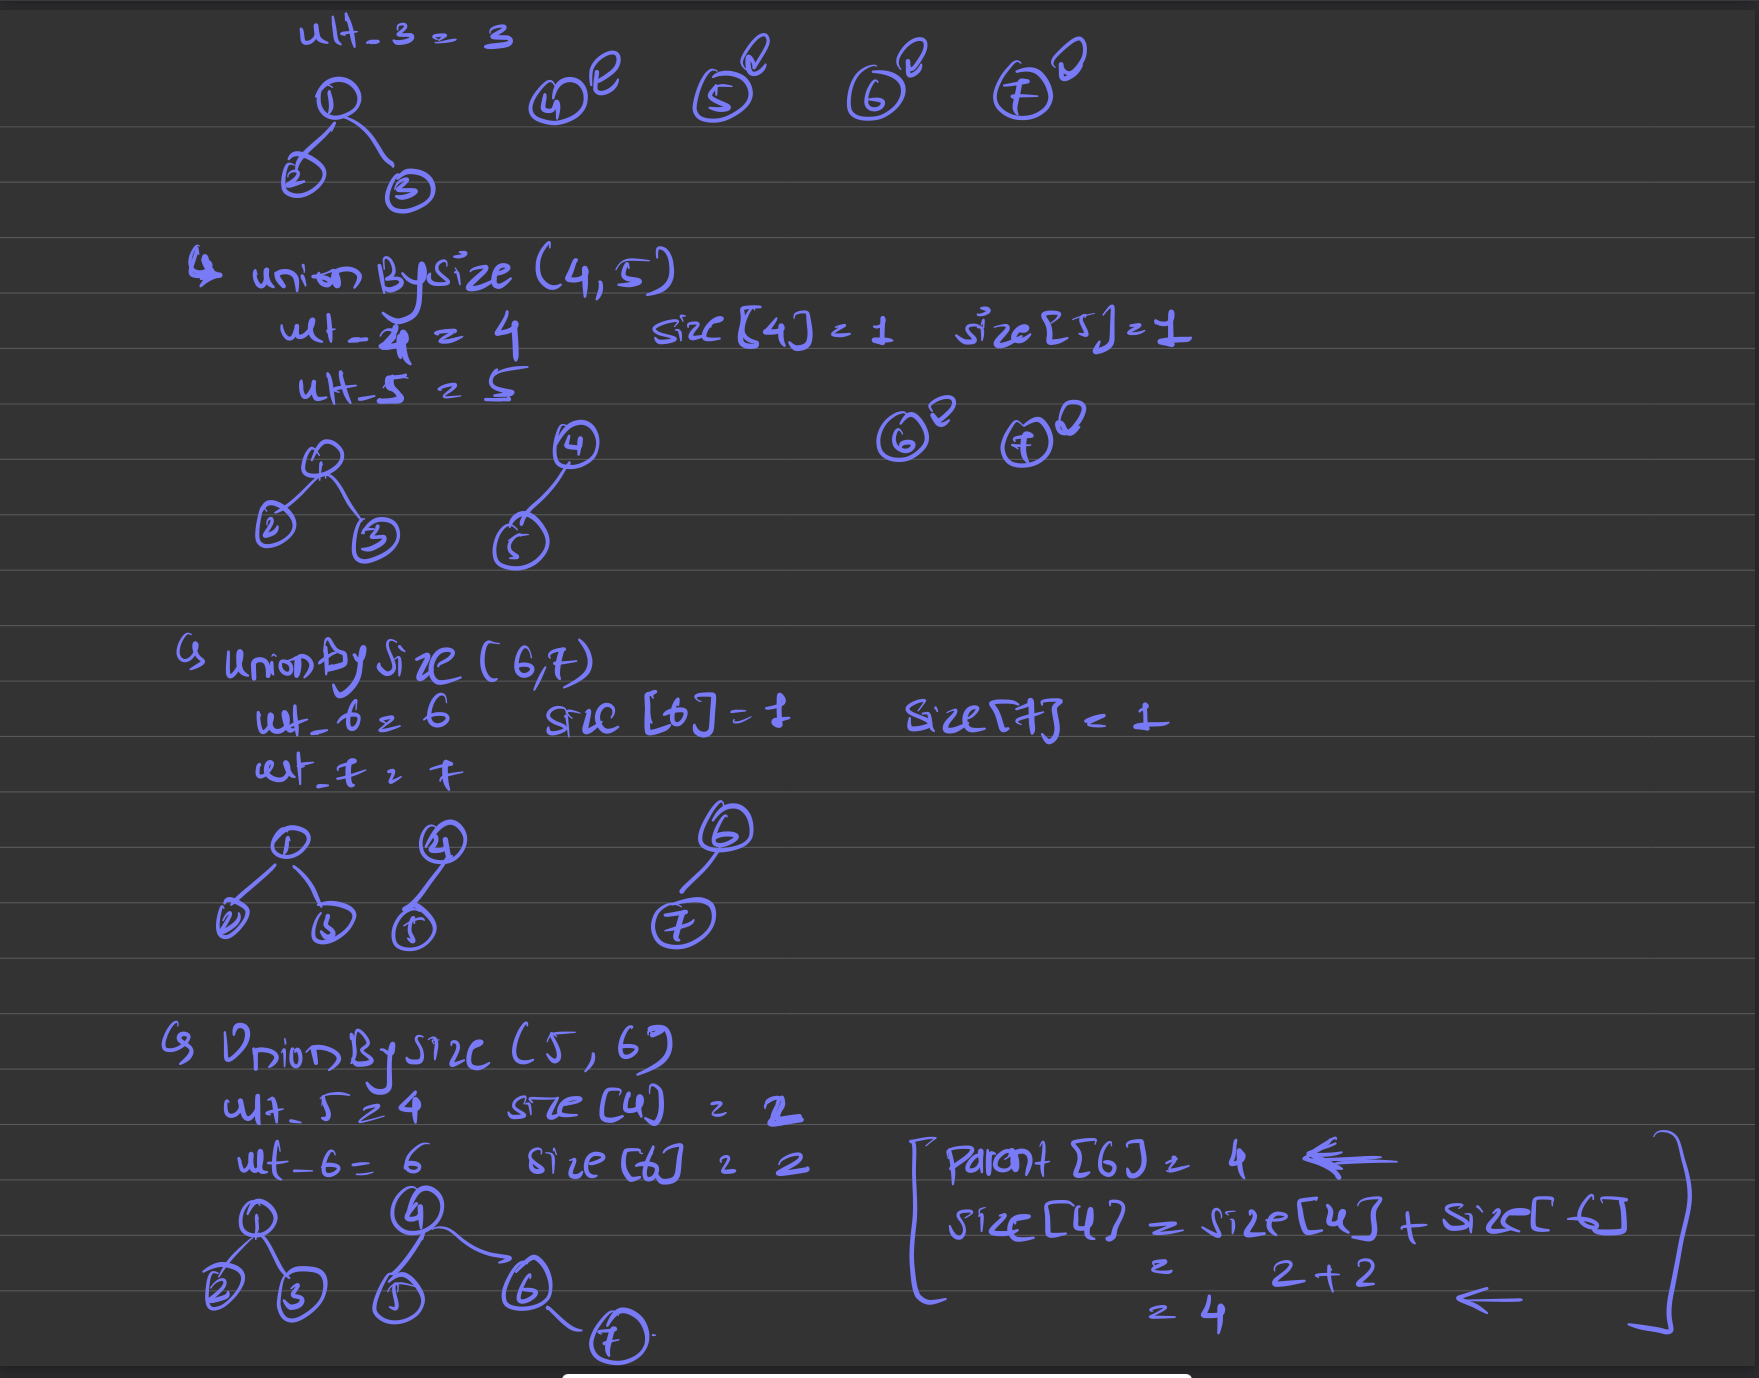 ult_3 = 3
1 4 5 6 7
2 3
unionBySize (4,5)
ult_4 = 4 size [4] = 1 size [5] = 1
ult_5 = 5
1 4 6 7
2 3 5
UnionBySize (6,7)
ult_6 = 6 size [6] = 1 Size[7] = 1
ult_7 = 7
1 4 6
2 3 5 7
UnionBySize (5, 6)
ult_5 = 4 size [4] = 2
ult_6 = 6 size [6] = 2
1 4
2 3 5 6
7
parent [6] = 4
size[4] = size[4] + size[6]
= 2 + 2
= 4